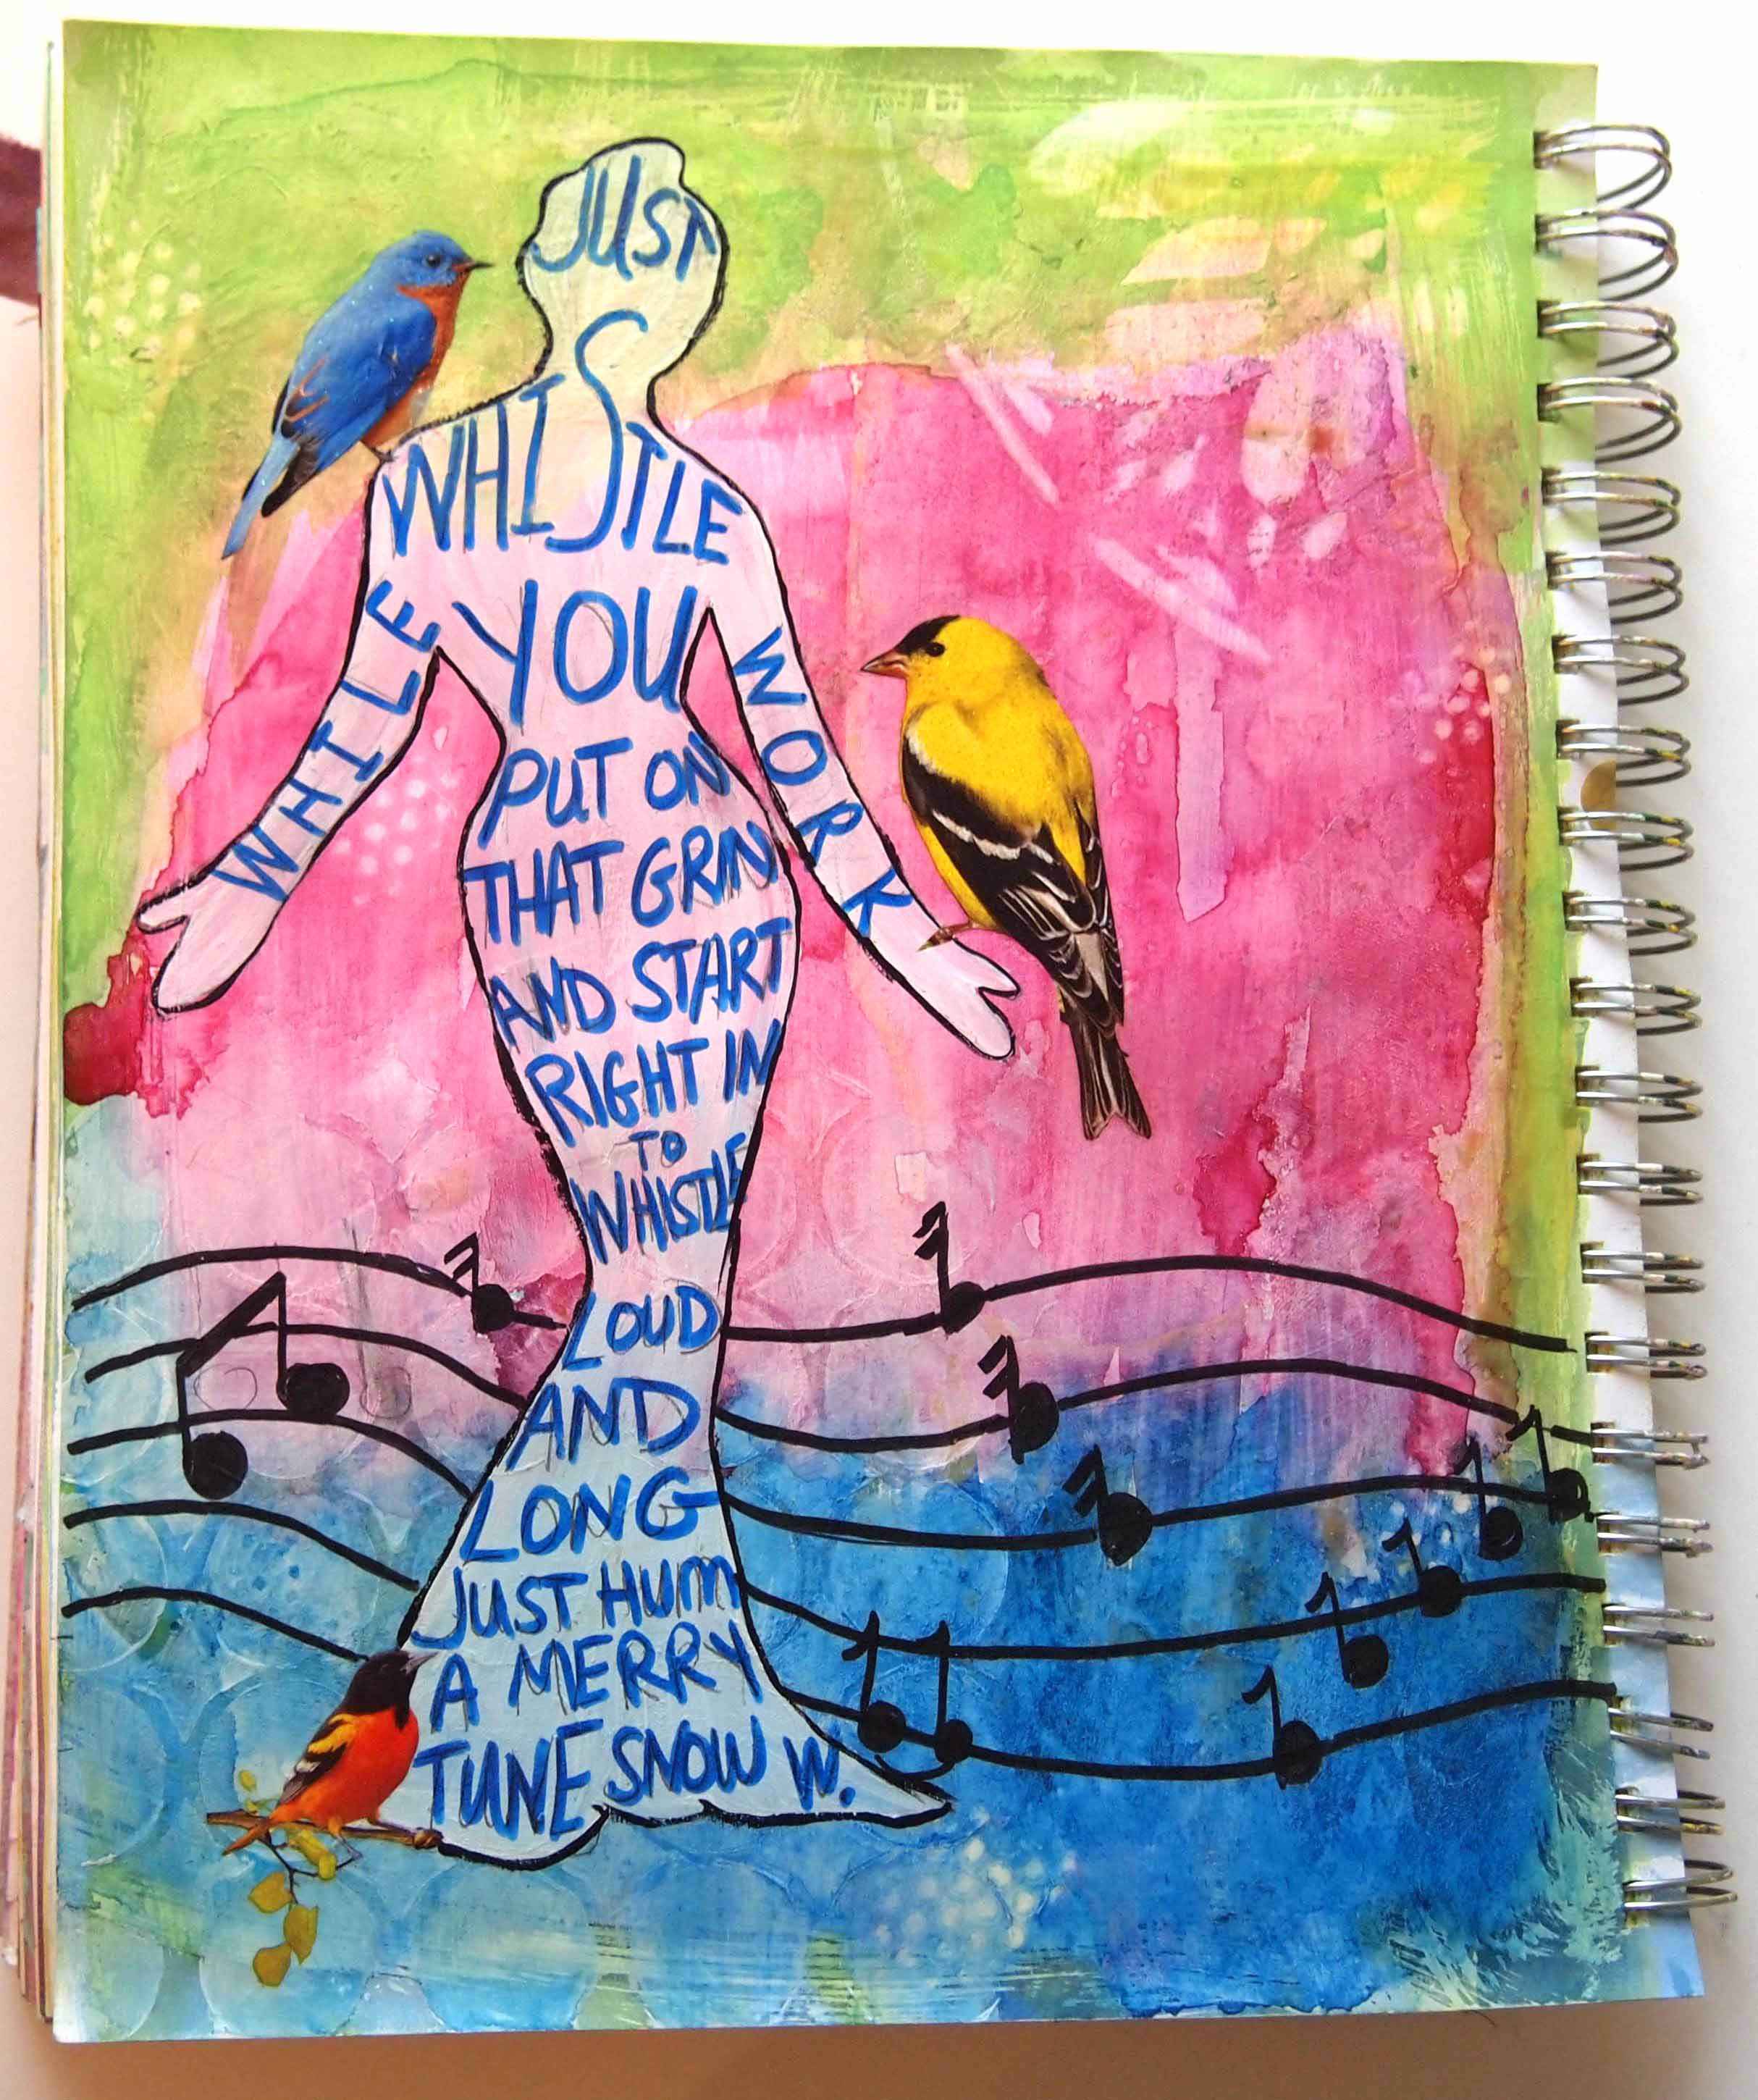 JUST
WHISTLE
WHILE
YOU
WORK
PUT ON
THAT GRIN
AND START
RIGHT IN
TO
WHISTLE
LOUD
AND
LONG
JUST HUM
A MERRY
TUNE SNOW W.